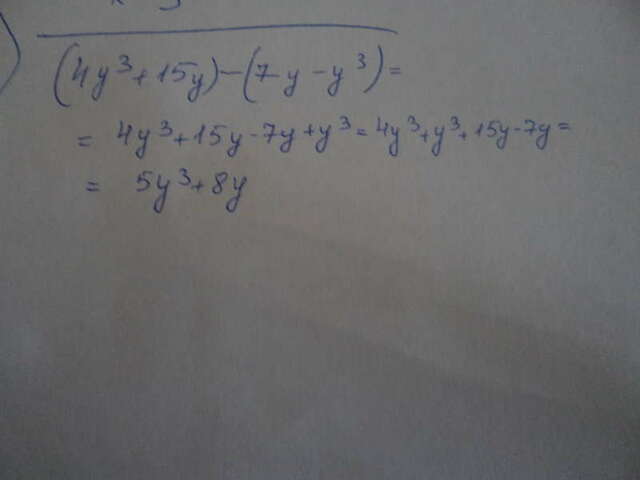 (4y³+15y)-(7y-y³)=
= 4y³+15y-7y+y³=4y³+y³+15y-7y=
= 5y³+8y